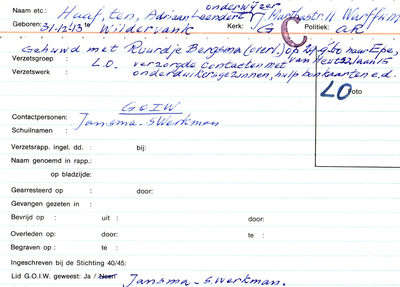 onderwijzer
Naam etc.: Haaf, ten, Adriaan Leendert Marthastr. 11 Warffum
Geboren: 31-12-'13 te Wildervank Kerk: G C Politiek: AR
Gehuwd met Ruurdje Bergsma (overl.) op naar Epe,
Verzetsgroep : L.O. verzorgde contacten met van Heutszlaan 15
Verzetswerk : onderduikersgezinnen, hulp bonkaarten e.d.
LO Foto
G.O.I.W
Contactpersonen: Jansma - S. Werkman
Schuilnaam :
Verzetsrapp. ingel. dd. : bij:
Naam genoemd in rapp.:
op bladzijde:
Gearresteerd op : door:
Gevangen gezeten in :
Bevrijd op : uit : door:
Overleden op: door: te :
Begraven op : te :
Ingeschreven bij de Stichting 40/45:
Lid G.O.I.W. geweest: Ja / Neen Jansma - S. Werkman.